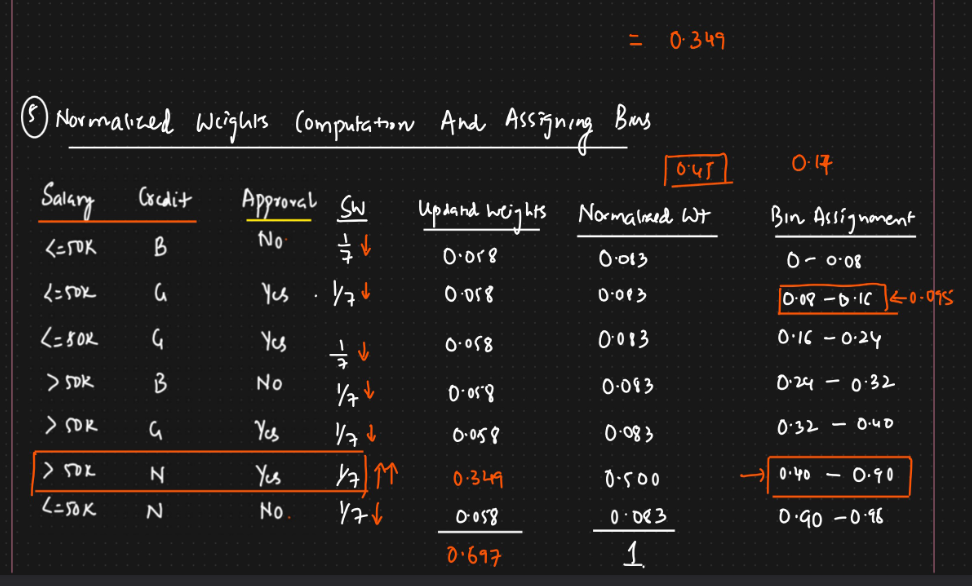 = 0.349
⑤ Normalized Weights Computation And Assigning Bins
0.45 0.17
Salary Credit Approval SW Updated Weights Normalized Wt Bin Assignment
<=50K B No. 1/7 ↓ 0.058 0.083 0 - 0.08
<=50K G Yes . 1/7 ↓ 0.058 0.083 0.08 - 0.16 ← 0.095
<=50K G Yes 1/7 ↓ 0.058 0.083 0.16 - 0.24
>50K B No 1/7 ↓ 0.058 0.083 0.24 - 0.32
>50K G Yes 1/7 ↓ 0.058 0.083 0.32 - 0.40
>50K N Yes 1/7 ↑↑ 0.349 0.500 → 0.40 - 0.90
<=50K N No. 1/7 ↓ 0.058 0.083 0.90 - 0.98
0.697 1